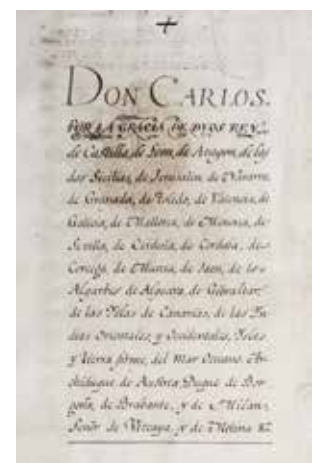 DON CARLOS.
POR LA GRACIA DE DYOS REY
de Castilla, de Leon, de Aragon, de las
dos Sicilias, de Jerusalen, de Navarra,
de Granada, de Toledo, de Valencia, de
Galicia, de Mallorca, de Menorca, de
Sevilla, de Cerdeña, de Cordova, de
Corcega, de Murcia, de Jaen, de los
Algarbes de Algecira, de Gibraltar,
de las Yslas de Canarias, de las Yn
dias Orientales, y Occidentales, Yslas
y tierra firme, del Mar Oceano, Ar
chiduque de Austria, Duque de Bor
goña, de Brabante, y de Milan,
Señor de Vizcaya, y de Molina &c.